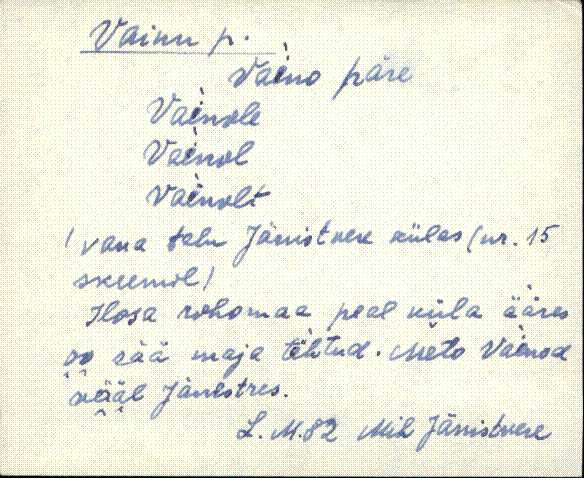 Vainu p.
Vaino päre
Vainole
Vainol
Vainolt
(vana talu Jänistvere külas (nr. 15
skeemil)
Ilosa rohomaa peal küla ääres
oo sää maja tehtud. Mëto Vainod
vääl Jänestres.
L. M. 82 Mih Jänistvere